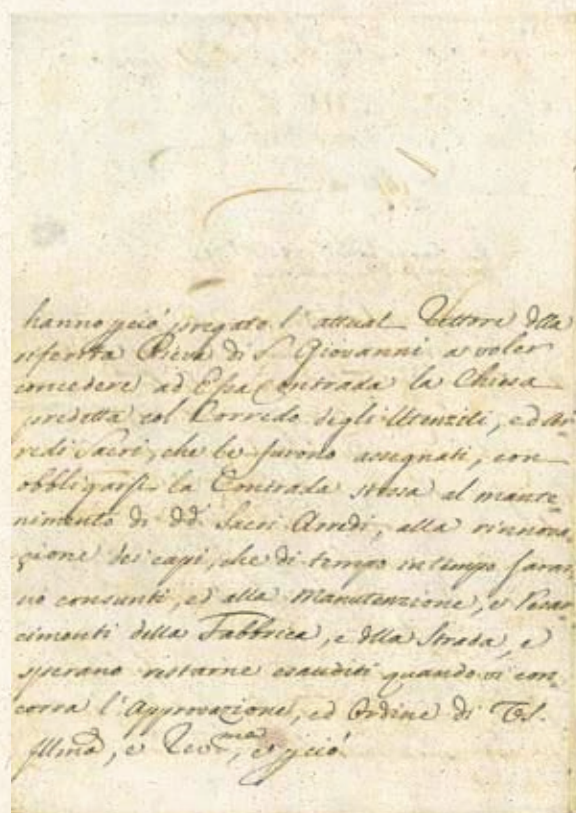 hanno p̱ciò pregato l'attual Rettore dlla
riferita Pieve di S. Giovanni a voler
concedere ad Essa Contrada la Chiesa
predetta col Corredo degli Utensili, ed Ar=
redi Sacri, che le furono assegnati, con
obbligarsi la Contrada stessa al mante=
nimento di dd.i Sacri Arredi, alla rinnova=
zione dei capi, che di tempo in tempo saran=
no consunti, ed alla Manutenzione, e Resar=
cimenti della Fabbrica, e dlla Strada, e
sperano restarne esauditi quando vi con=
corra l'Approvazione, ed Ordine di
Illma, e Revma, e p̱ciò